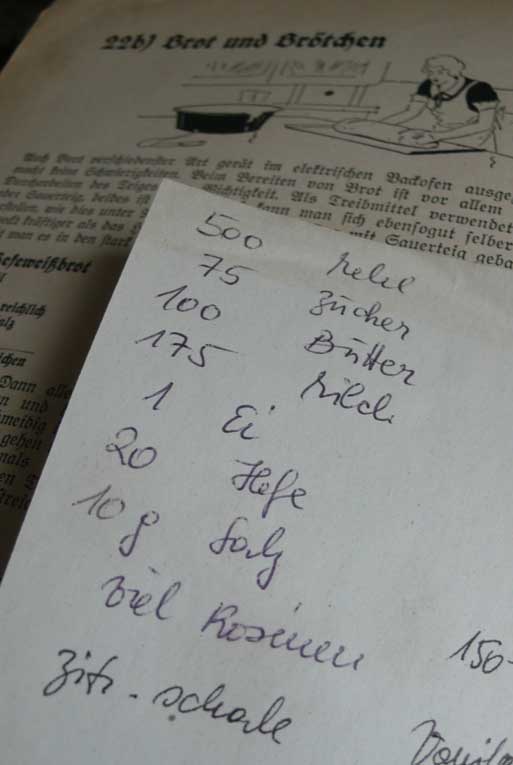 22b) Brot und Brötchen
Auch Brot verschiedenster Art gerät im elektrischen Backofen ausge
macht keine Schwierigkeiten. Beim Bereiten von Brot ist vor allem
Durcharbeiten des Teiges Wichtigkeit. Als Treibmittel verwendet
oder Sauerteig, beides ist kann man sich ebensogut selber
wie dies unter mit Sauerteig geba
kräftiger als das
man es in den stark
Hefeweißbrot
reichlich
alz
chen
Dann alle
n und
gehen
mals
500 Mehl
75 Zucker
100 Butter
175 Milch
1 Ei
20 Hefe
10 g Salz
viel Rosinen 150-
Zitr.-schale